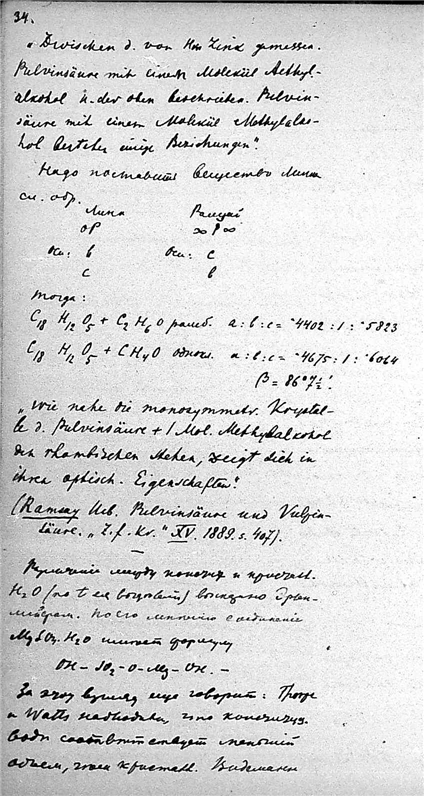 34.
„Zwischen d. von Hrn Zink gemessen.
Pulvinsäure mit einem Molekül Aethyl-
alkohol u. der oben beschrieben. Pulvin-
säure mit einem Molekül Methylalko-
hol bestehen einige Beziehungen".
Надо поставить вещество Линка
сл. обр.
Линк Рамзай
оР ∞P∞
оси: b оси: c
c b
тогда:
C18 H12 O5 + C2 H6 O ромб. a:b:c = ·4402:1:·5823
C18 H12 O5 + CH4O однокл. a:b:c = ·4675:1:·6064
β = 86°7½'.
„Wie nahe die monosymmetr. Krystal-
le d. Pulvinsäure + 1 Mol. Methylalkohol
den rhombischen stehen, zeigt sich in
ihren optisch. Eigenschaften".
(Ramsay Ueb. Pulvinsäure und Vulpin-
säure. „Z. f. Kr." XV. 1889. s. 407).
Различие между конституц и кристалл.
H2O (по t ея выделения) высказано Эрлен-
мейером. По его мнению соединение
MgSO4.H2O имеет формулу
OH–SO2–O–Mg–OH.–
За этот взгляд еще говорит: Thorpe
и Watts находили, что конституц.
воды соответствует меньший
объем, чем кристалл. Видеманн